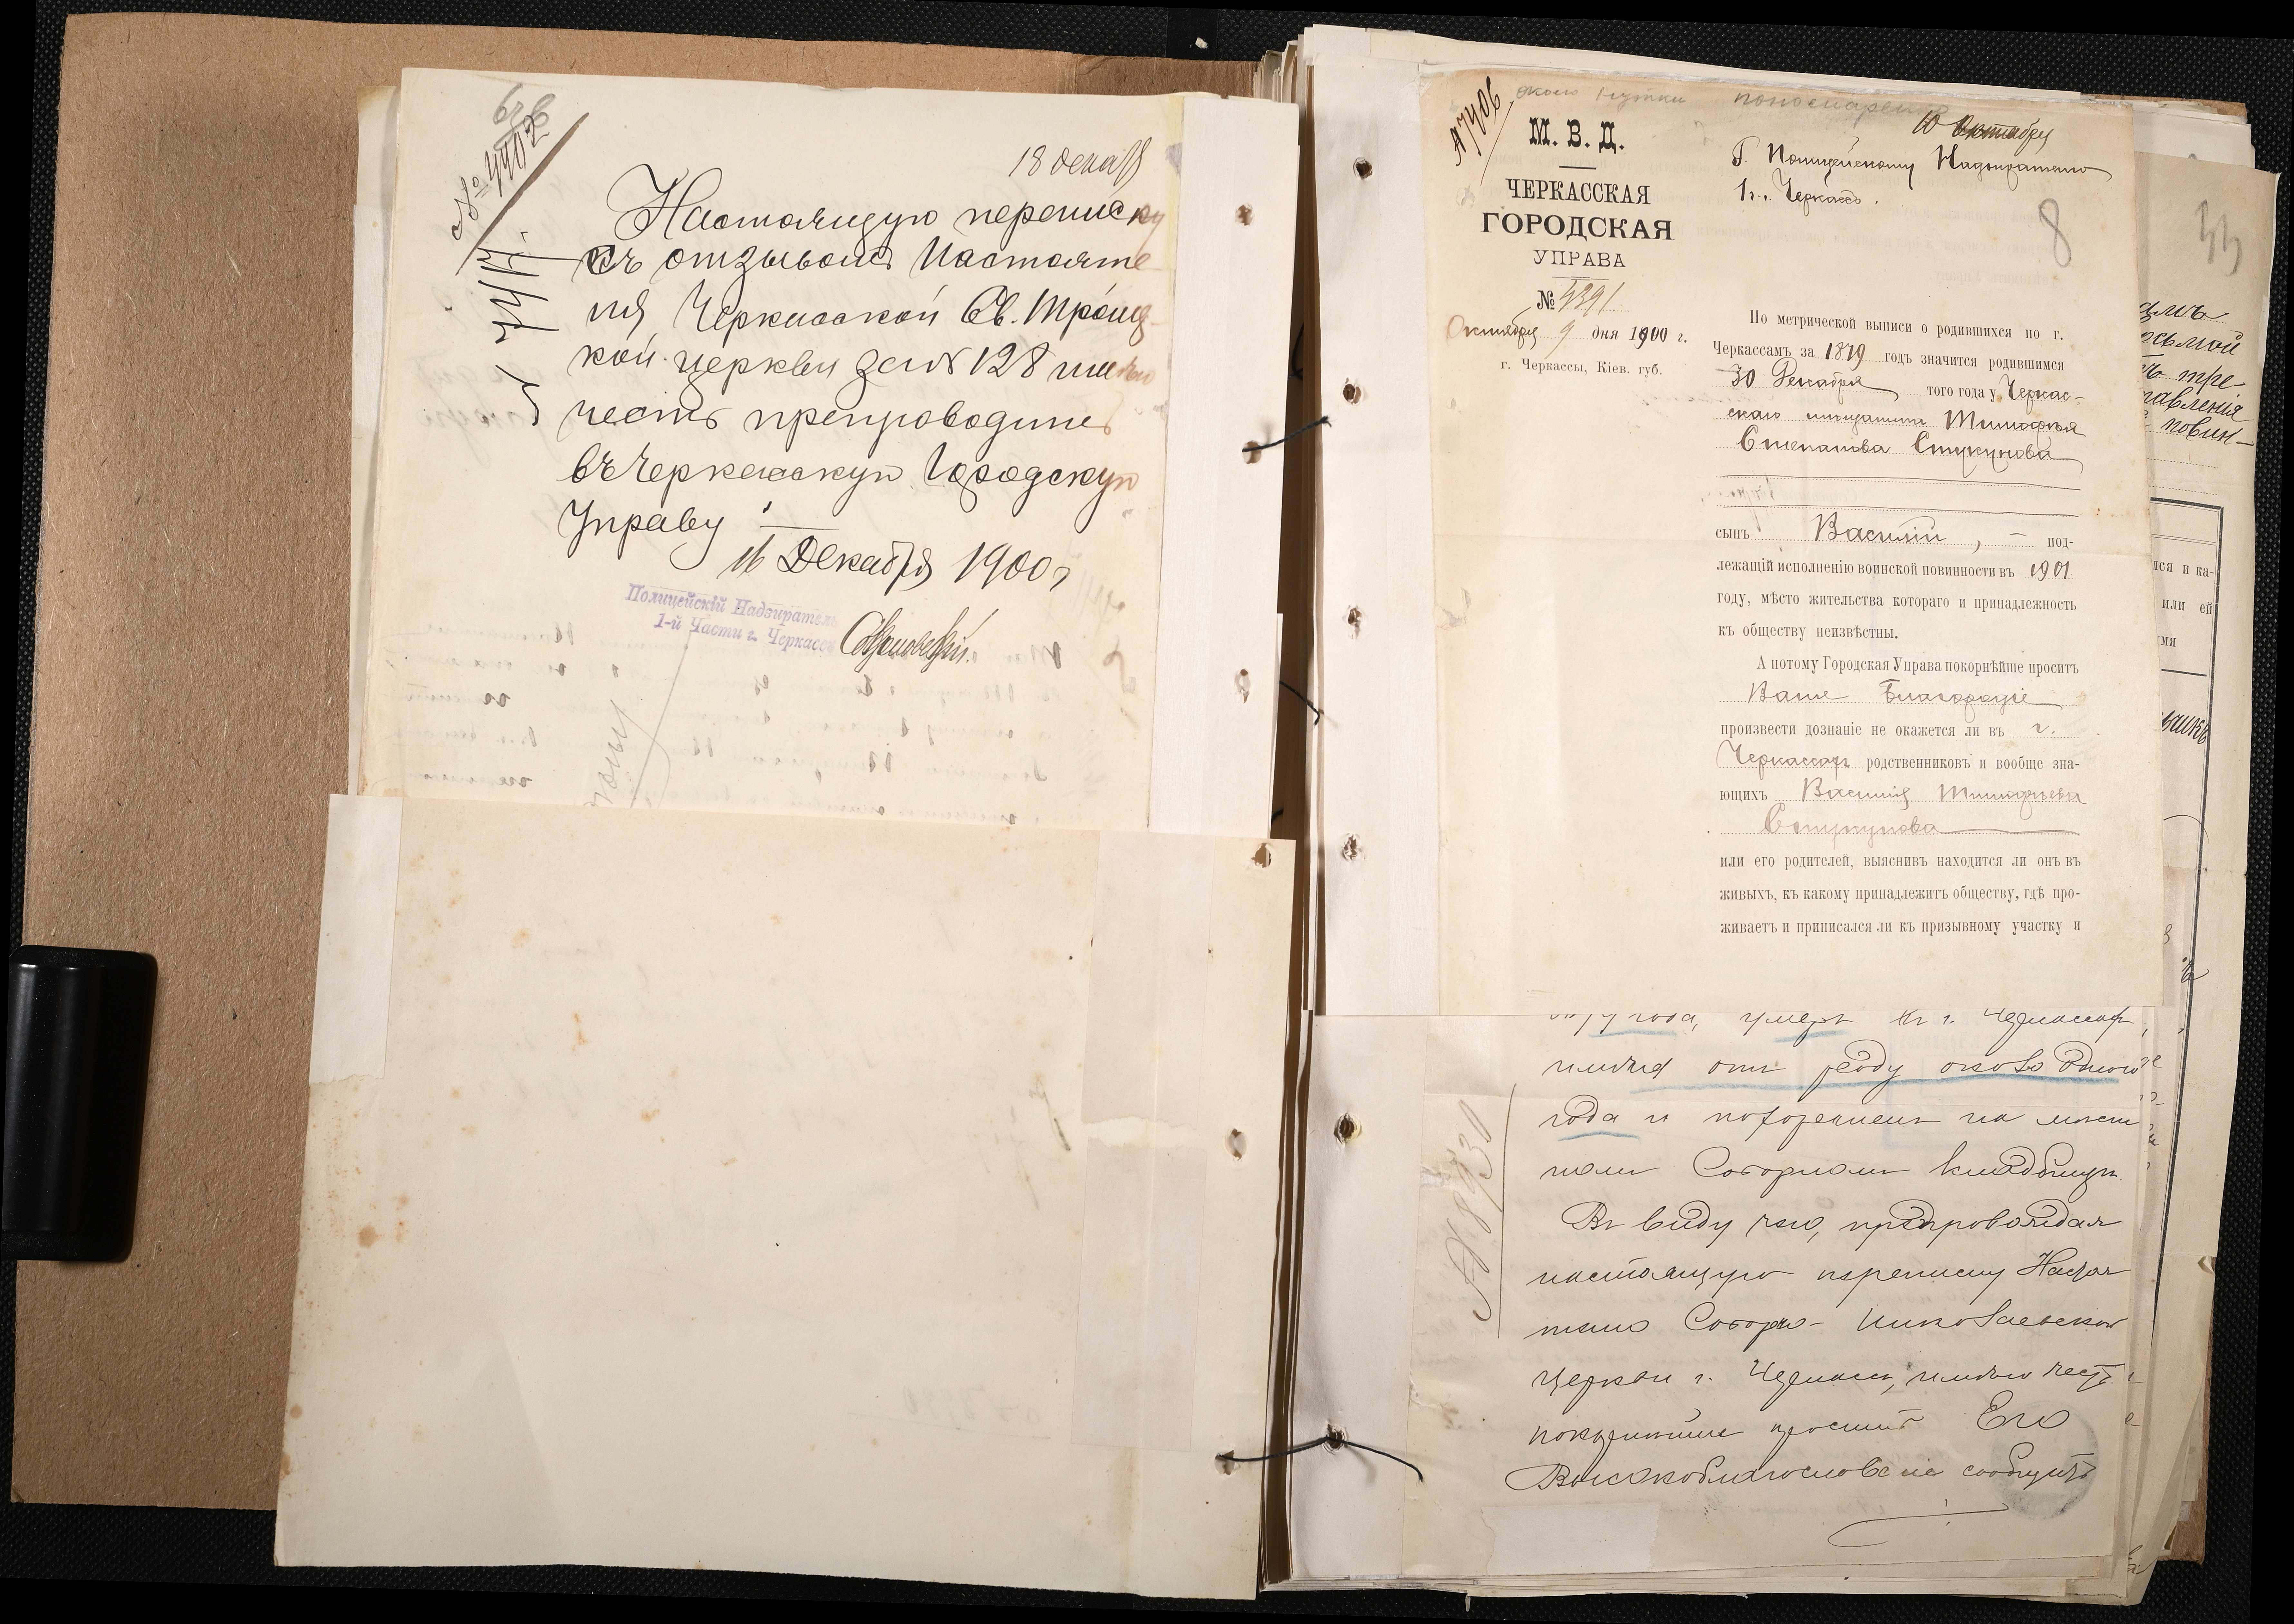 № 4402
18 дека
Настоящую переписку
съ отзывомъ Настояте
ля Черкасской Св. Троиц
кой церкви за № 128 имѣю
честь препроводить
въ Черкасскую Городскую
Управу
16 Декабря 1900 г
Полицейскій Надзиратель
1-й Части г. Черкассъ
около Пономаренко
№ 7406
10 Октября
М. В. Д.
Г. Полицейскому Надзирателю
1 ч. г. Черкассъ.
ЧЕРКАССКАЯ
ГОРОДСКАЯ
УПРАВА
8
33
№ 4391
Октября 9 дня 1900 г.
г. Черкассы, Кіев. губ.
По метрической выписи о родившихся по г.
Черкассамъ за 1879 годъ значится родившимся
30 Декабря того года у Черкас-
скаго мѣщанина Тимофея
Степанова
сынъ Василій, — под-
лежащій исполненію воинской повинности въ 1901
году, мѣсто жительства котораго и принадлежность
къ обществу неизвѣстны.
А потому Городская Управа покорнѣйше проситъ
Ваше Благородіе
произвести дознаніе не окажется ли въ г.
Черкассахъ родственниковъ и вообще зна-
ющихъ Василія Тимофеева
или его родителей, выяснивъ находится ли онъ въ
живыхъ, къ какому принадлежитъ обществу, гдѣ про-
живаетъ и приписался ли къ призывному участку и
года, умеръ въ г. Черкассахъ,
имѣя отъ роду около одного
года и похороненъ на мѣст
номъ Соборномъ кладбищѣ.
Въ виду чего, препровождая
настоящую переписку Настоя
телю Соборно-Николаевской
церкви г. Черкассъ, имѣю честь
покорнѣйше просить Его
Высокоблагословеніе сообщить
№ 8930
осьмой
тре-
равленія
повин-
лся и ка-
или ей
имя